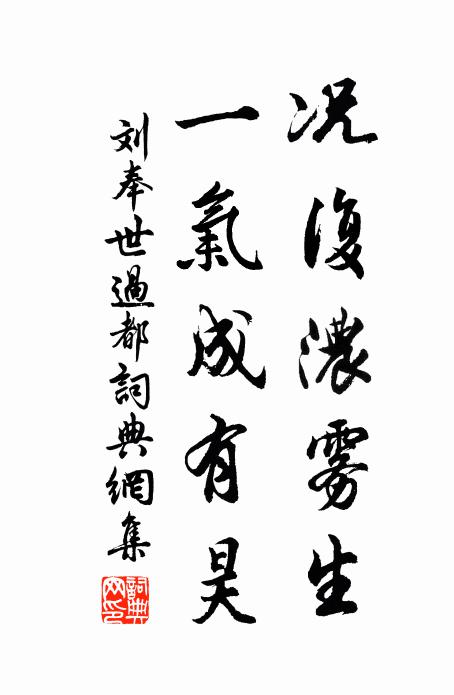 况復濃雾生
一氣成有昊
刘奉世過都詞典網集
詞典